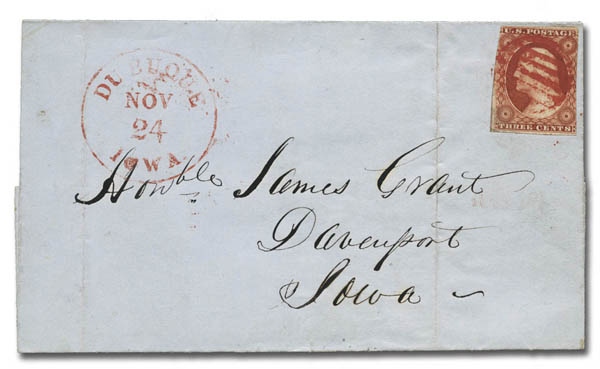 DUBUQUE
NOV
24
IOWA
U.S. POSTAGE
THREE CENTS
Honble James Grant
Davenport
Iowa